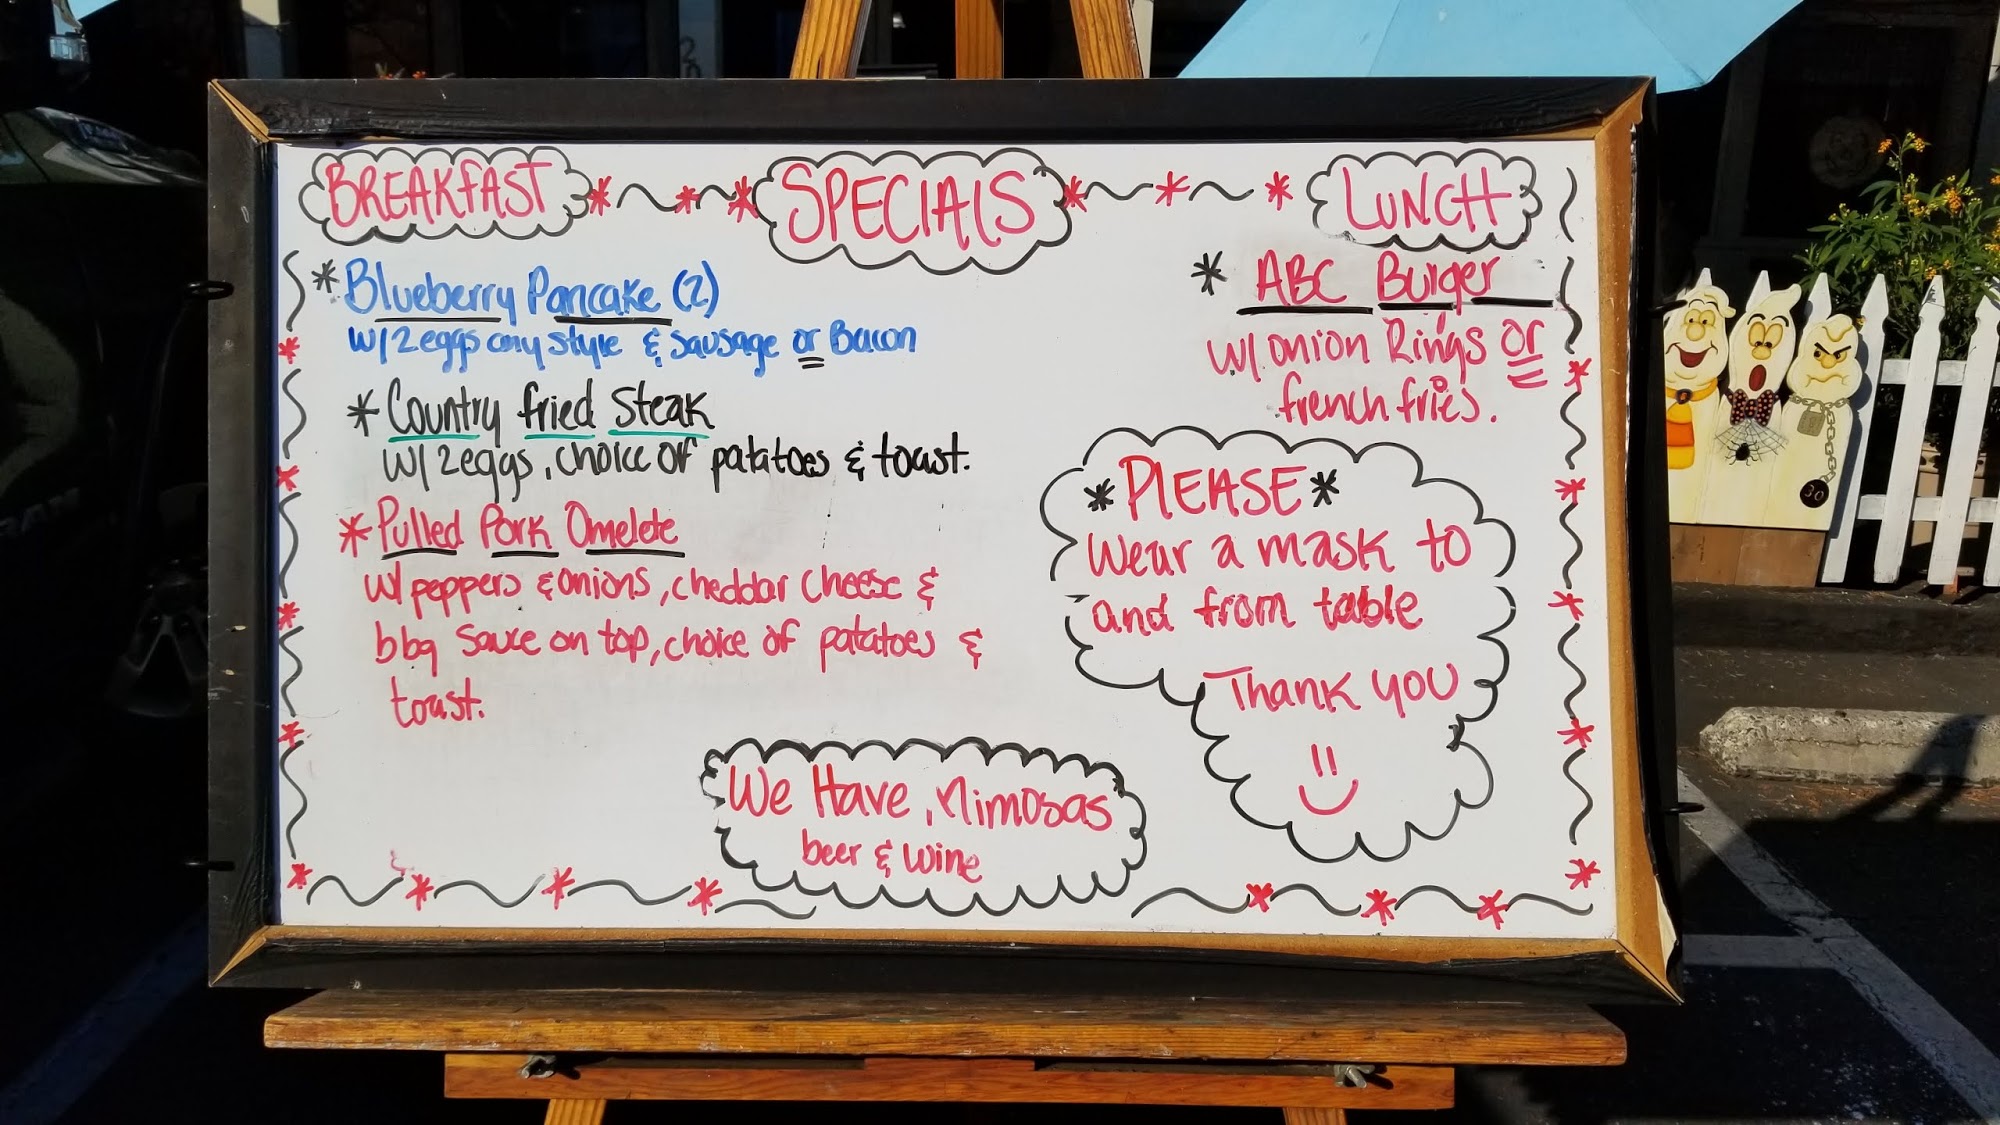 BREAKFAST
SPECIALS
LUNCH
* Blueberry Pancake (2)
w/ 2 eggs any style & sausage or Bacon
* Country fried Steak
w/ 2 eggs, choice of patatoes & toast.
* Pulled Pork Omelete
w/ peppers & onions, cheddar cheese &
bbq sauce on top, choice of patatoes &
toast.
* ABC Burger
w/ onion Rings or
french fries.
* PLEASE *
Wear a mask to
and from table
Thank you
We Have Mimosas
beer & wine
30